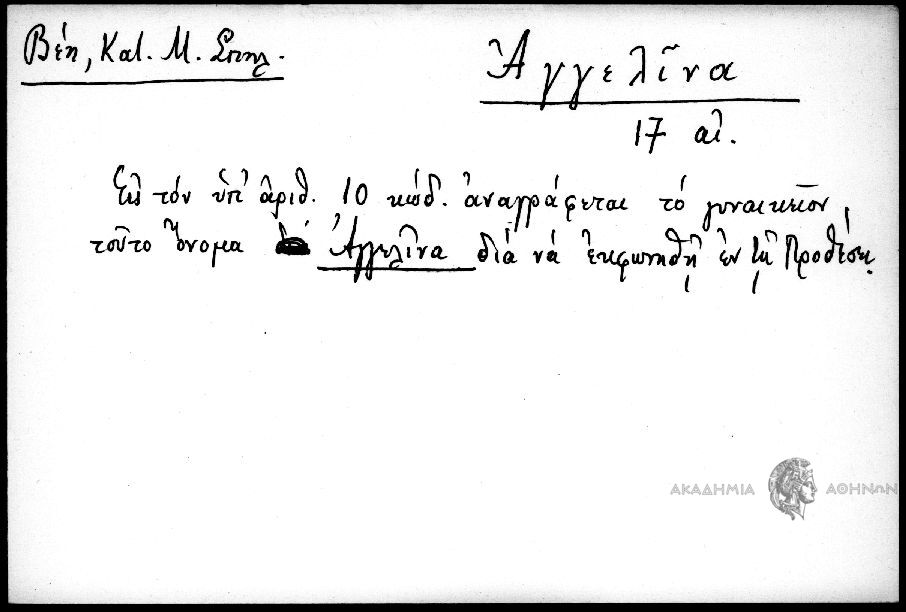 Βέη, Κατ. Μ. Σπηλ.
Ἀγγελῖνα
17 αἰ.
Εἰς τόν ὑπ' ἀριθ. 10 κώδ. ἀναγράφεται τό γυναικεῖον
τοῦτο ὄνομα Ἀγγελῖνα διά νά ἐκφωνηθῇ ἐν τῇ Προθέσει.
ΑΚΑΔΗΜΙΑ ΑΘΗΝΩΝ